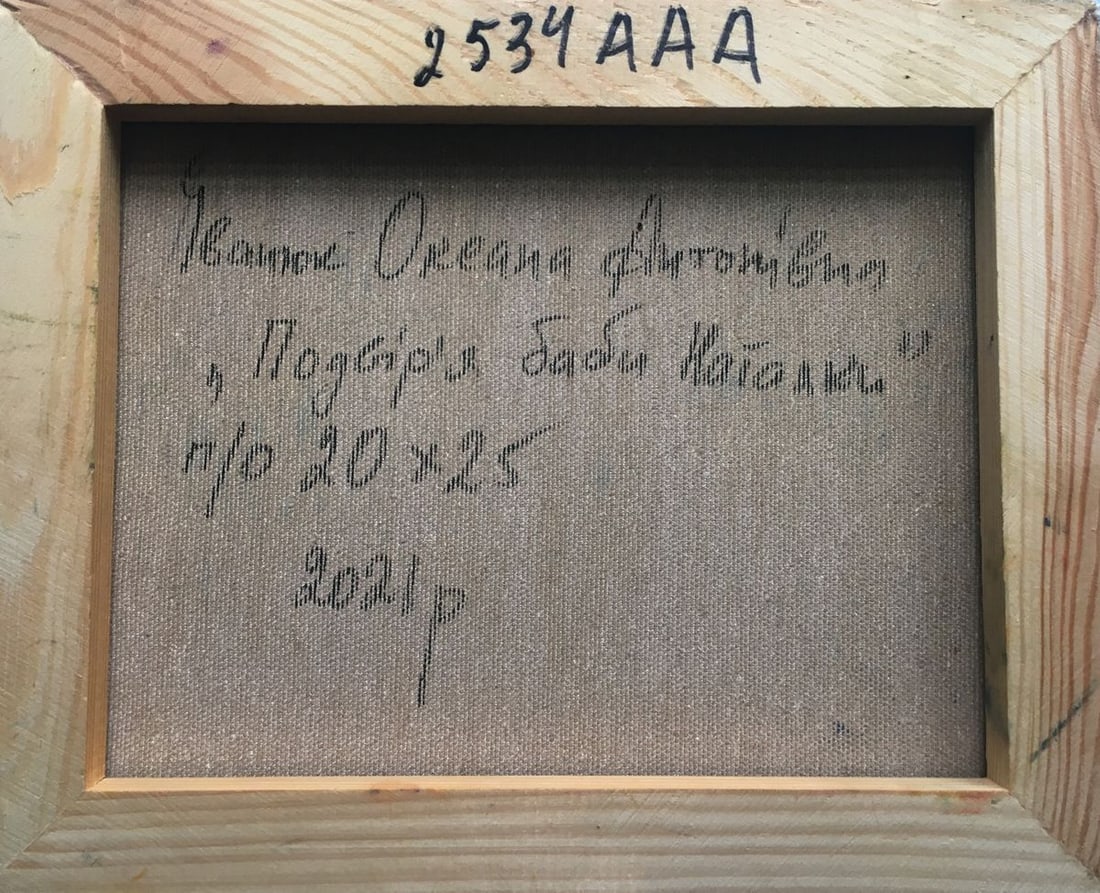 2534AAA
Іванюк Оксана Антонівна
„Подвір'я баби Наталки"
п/о 20х25
2021р